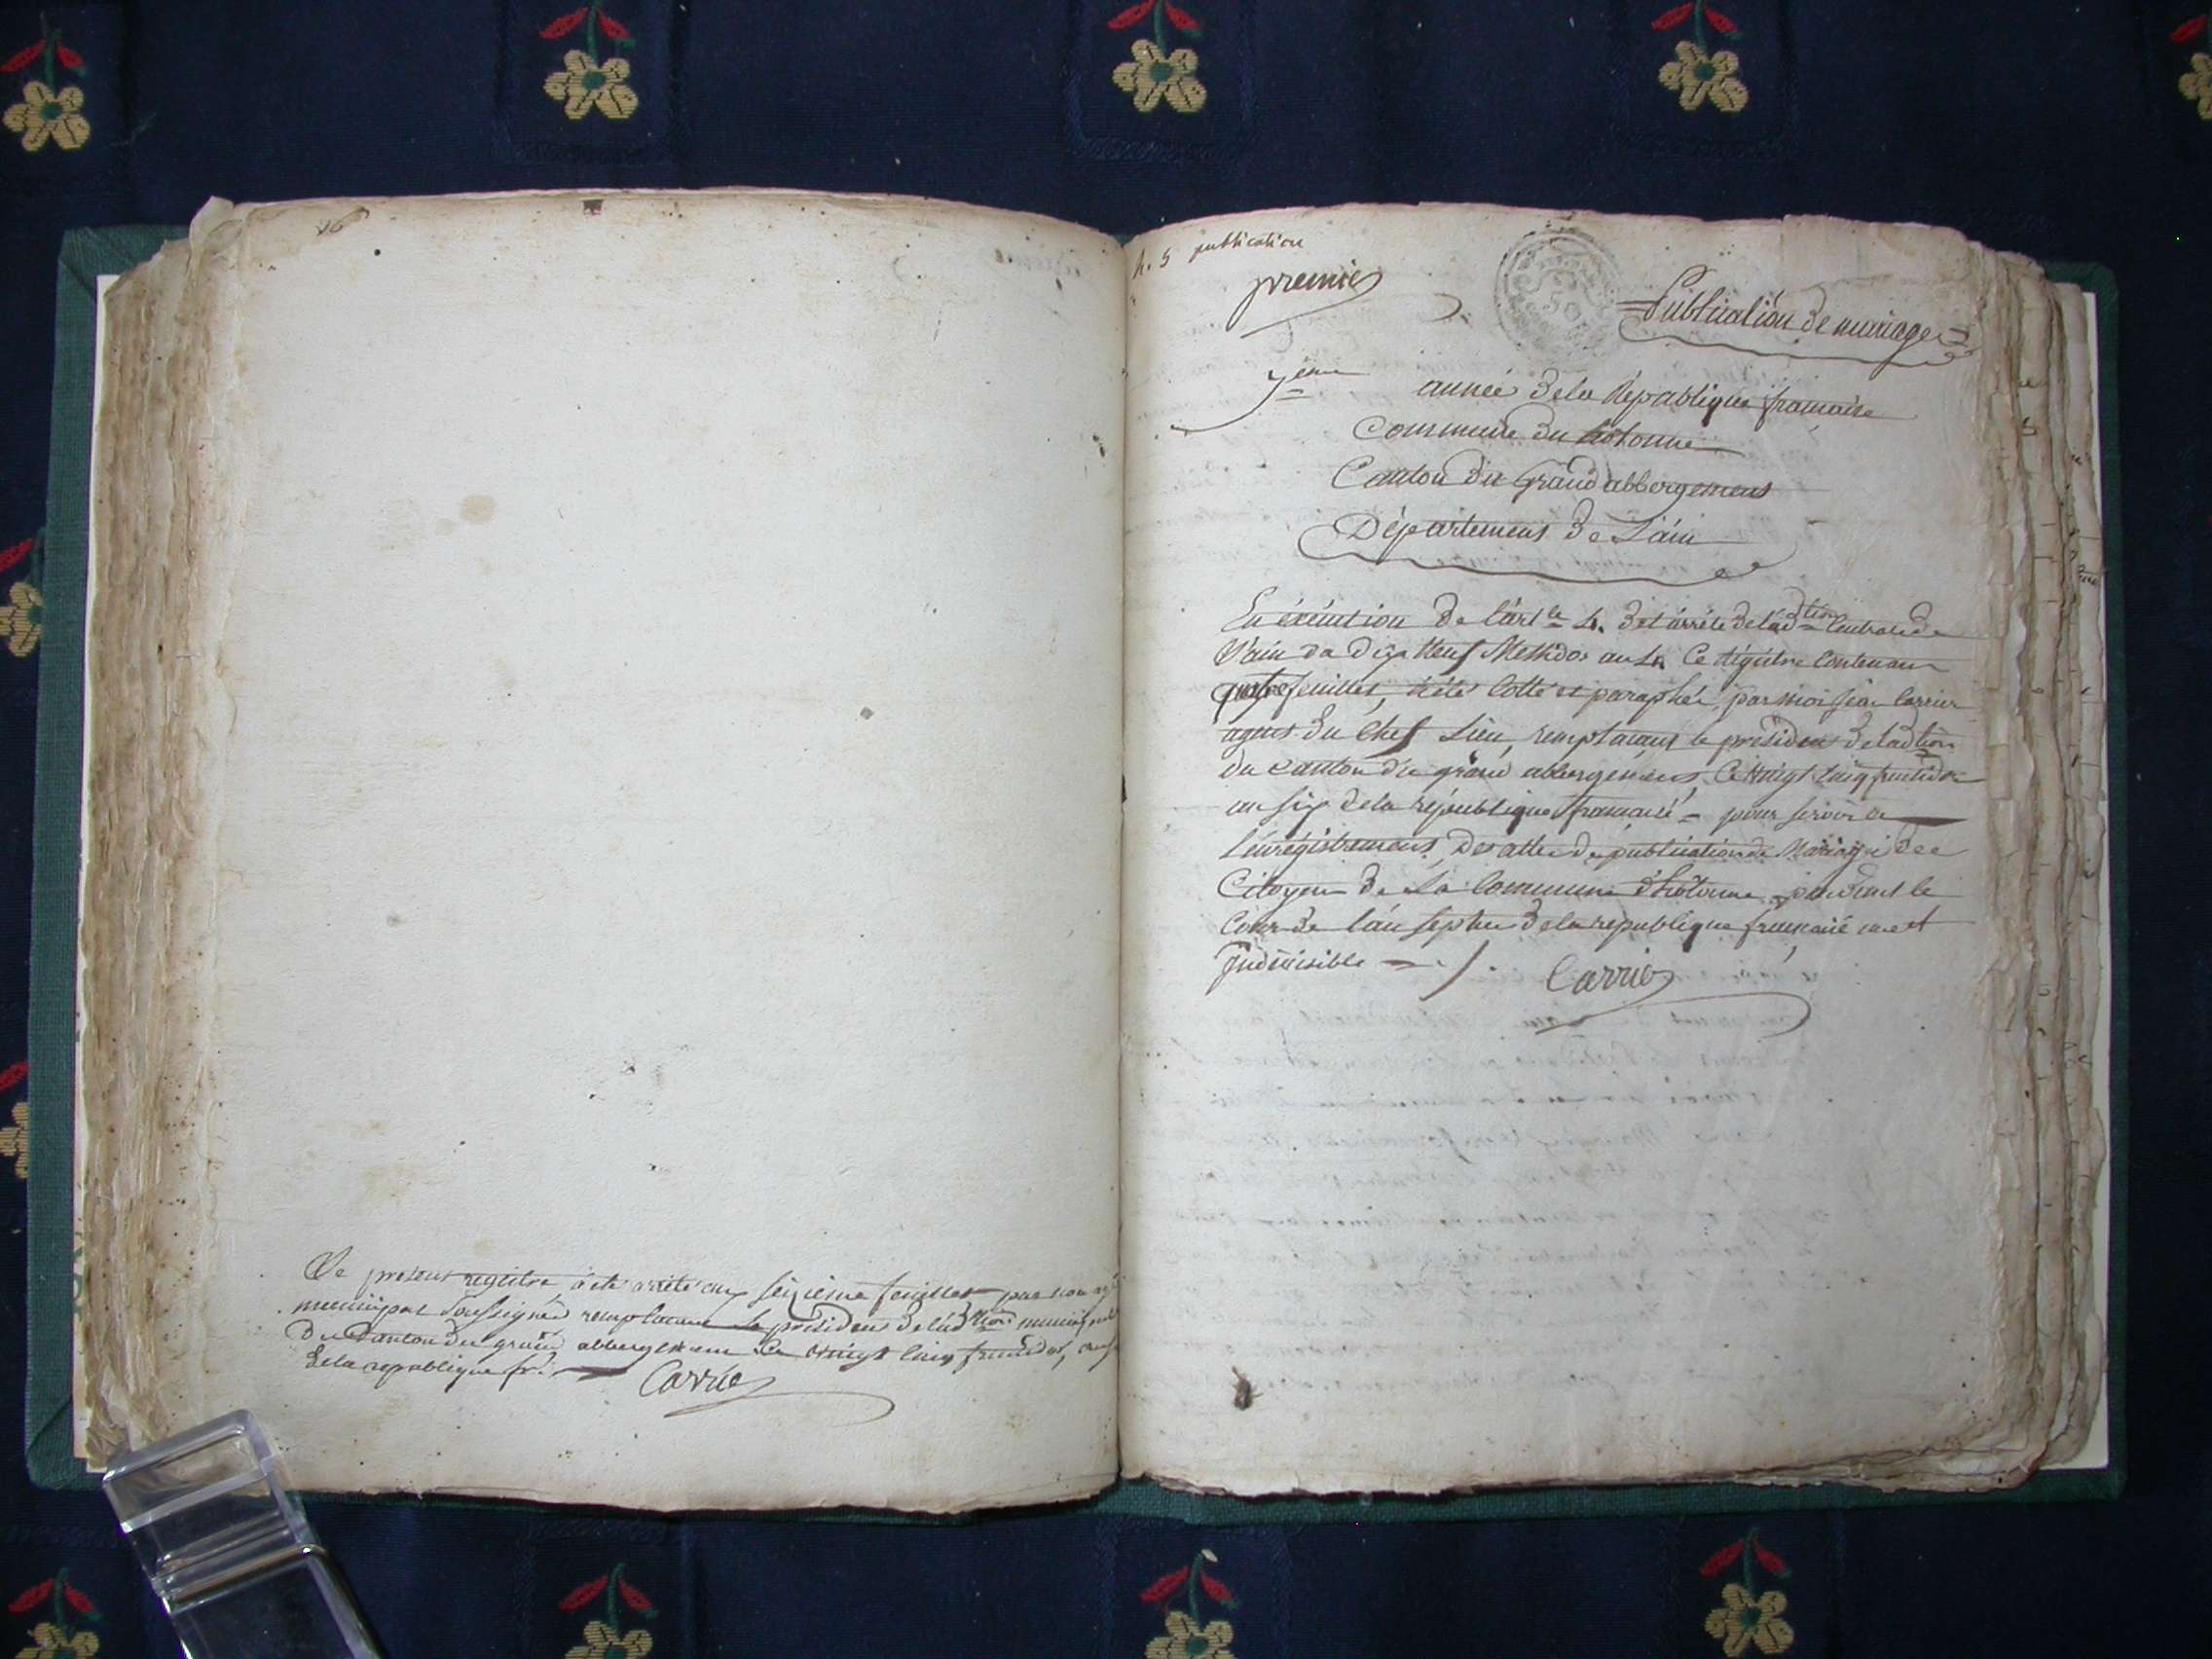 16
Le present registre, a été arrêté au seizieme feuillet par nous
municipal soussigné remplacant le president de l'ad.tion municipale
du canton du grand abbergement Ce vingt cinq fructidor,
de la republique fr.
Carrier
n. 5 publication
premier
Publication de mariage
7ieme année de la République française
Commune du hotonne
Canton du Grand abbergement
Département de L'ain
En éxécution de l'art.le 4. de l'arrêté de l'ad.tion Centrale de
L'ain du dix neuf Messidor an 4. Ce régistre Contenant
quatre feuillets, a été Cotté et paraphé, par moi jean Carrier
agent du Chef Lieu, remplacant le président de l'adtion
du canton du grand abbergement, Ce vingt cinq fructidor
an six de la république francaise = pour servir a
L'enrégistrement, des actes de publication de Mariage des
Citoyens de La Commune d'hotonne pendant le
Cour de l'an sept de la republique francaise une et
Indivisible = ./.
Carrier